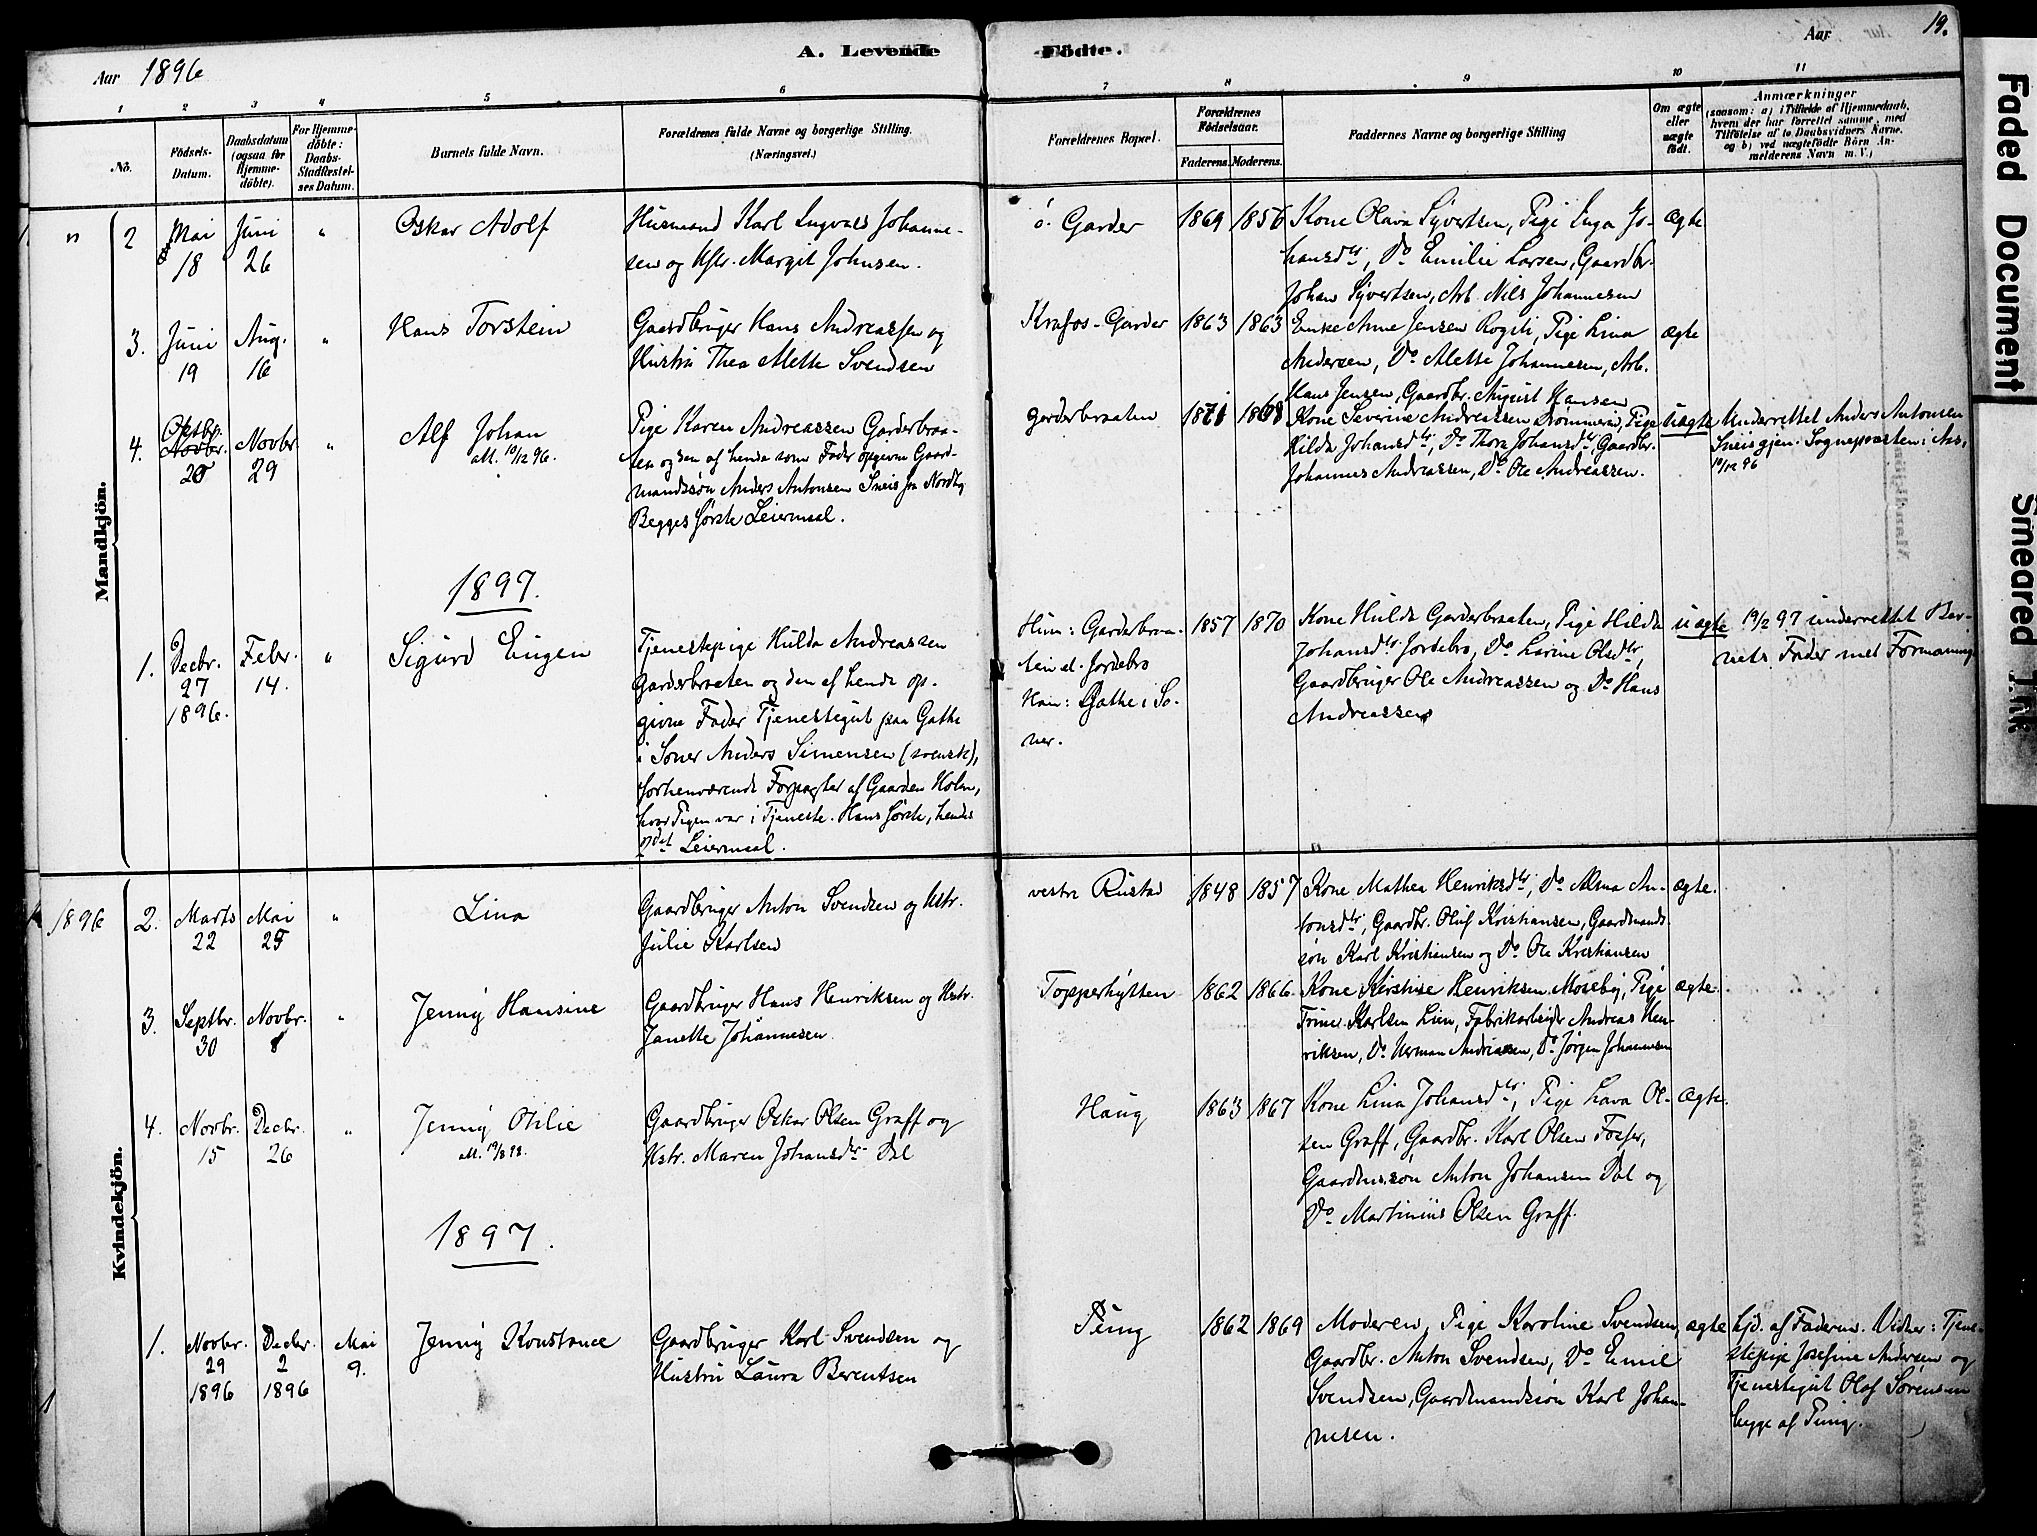 Aar 1896
A. Levende
Födte.
Aar
19.
1 2 3 4 5 6 7 8 9 10 11
No.
Födsels-
Datum.
Daabsdatum
(ogsaa for
Hjemme-
döbte).
For Hjemme-
döbte:
Daabs-
Stadfæstel-
ses Datum.
Barnets fulde Navn.
Forældrenes fulde Navne og borgerlige Stilling.
(Næringsvei.)
Forældrenes Bopæl.
Forældrenes
Födselsaar.
Faderens. Moderens.
Faddernes Navne og borgerlige Stilling
Om ægte
eller
uægte
födt.
Anmærkninger
(saasom: a) i Tilfælde af Hjemmedaab,
hvem der har forrettet samme, med
Tilföielse af to Daabsvidners Navne,
og b) ved uægtefödte Börn An-
melderens Navn m. V.)
Mandkjön.
2 Mai 18 Juni 26 "
Oskar Adolf
Husmand Karl Ingvald Johanne-
sen og Hstr. Margit Johnsen.
ö. Garder
1869 1856
Kone Olava Syvertsen, Pige Inga Jo-
hansdtr, Do Emilie Larsen, Gaardbr.
Johan Syvertsen, Arb. Nils Johannesen
ægte
3. Juni 19 Aug. 16 "
Hans Torstein
Gaardbruger Hans Andreassen og
Hustru Thea Mette Svendsen
Krafos-Garder
1863 1863
Enke Anne Jensen Rogili, Pige Lina
Andersen, Do Alette Johannesen, Arb.
Hans Jensen, Gaardbr. August Hansen
ægte
4. Oktbr. Novbr. 25 Novbr 29 "
Alf Johan
att. 10/12 96.
Pige Karen Andreassen Garderbraa-
ten og den af hende som Fader opgivne Gaard-
mandssön Anders Antonsen Sneis fra Nordby
Begges förste Leiermaal.
Garderbraaten
1871 1868
Kone Severine Andreassen Drömmerin, Pige
Hilda Johansdtr, Do Thora Johansdtr, Gaardbr.
Johannes Andreassen, Do Ole Andreassen.
uægte
Underrettet Anders Antonsen
Sneis gjen. Sognepræsten i Aas,
10/12 96
1897.
1. Decbr. 27 1896. Febr. 14. "
Sigurd Eugen
Tjenestepige Hulda Andreassen
Garderbraaten og den af hende op-
givne Fader Tjenestegut paa Gathe
i Soner Anders Simensen (svensk),
forhenværende Forpagter af Gaarden Holm,
hvor Pigen var i Tjeneste. Hans förste, hendes
2det Leiermaal.
Hun: Garderbraa-
ten el. Jordebro
Han: Gathe i So-
ner.
1857 1870
Kone Hulda Garderbraaten, Pige Hilda
Johansdtr Jordebro, Do Larine Olsdtr,
Gaardbruger Ole Andreassen og Do Hans
Andreassen
uægte
19/2 97 underrettet Bar-
nets Fader med Formaning
Kvindekjön.
1896
2. Marts 22 Mai 25 "
Lina
Gaardbruger Anton Svendsen og Hstr.
Julie Karlsen
vestre Rustad
1848 1857
Kone Mathea Henriksdtr, Do Alma An-
tonsdtr, Gaardbr. Oluf Kristiansen, Gaardmands-
sön Karl Kristiansen og Do Ole Kristiansen
ægte.
3. Septbr. 30 Novbr. 8 "
Jenny Hansine
Gaardbruger Hans Henriksen og Hstr.
Janette Johannesen
Topperhytten
1862 1866.
Kone Kirstine Henriksen Moseby, Pige
Trine Karlsen Lien, Fabrikarbeider Andreas Hen-
riksen, Do Herman Andreassen, Do Jörgen Johannesen
ægte.
4. Novbr. 15 Decbr. 26 "
Jenny Otilie
Gaardbruger Oskar Olsen Graff og
Hstr. Maren Johansdtr Dal
Haug
1863 1867
Kone Lina Johansdtr, Pige Lava Ol-
sen Graff, Gaardbr. Karl Olsen Fosser,
Gaardmssön Anton Johansen Dal og
Do Martinius Olsen Graff.
Ægte.
1897.
1. Novbr. 29 1896 Decbr. 2 1896 Mai 9.
Jenny Konstance
Gaardbruger Karl Svendsen og
Hustru Laura Berentsen
Pung
1862 1869
Moderen, Pige Karoline Svendsen,
Gaardbr. Anton Svendsen, Do Emil
Svendsen, Gaardmandssön Karl Johan-
nesen.
ægte
hjd. af Faderen. Vidner: Tjene-
stepige Josefine Andersen og
Tjenestegut Olaf Sörensen
begge af Pung.
Faded Document
Smeared Ink